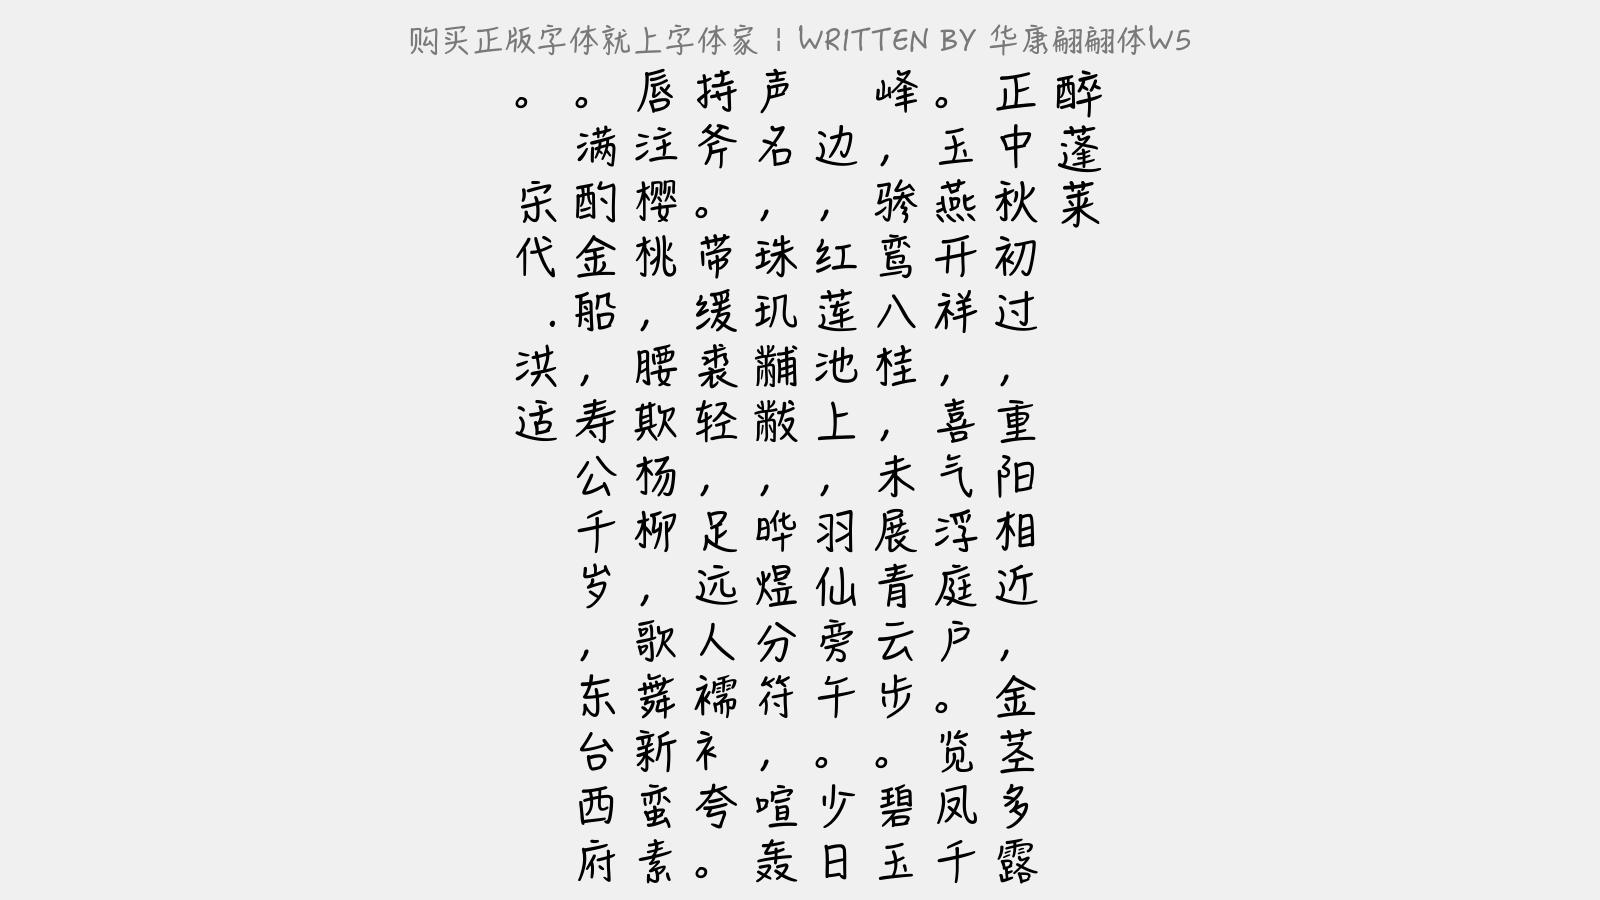 购买正版字体就上字体家 | WRITTEN BY 华康翩翩体W5
醉蓬莱
正中秋初过，重阳相近，金茎多露
。玉燕开祥，喜气浮庭户。览凤千
峰，骖鸾八桂，未展青云步。碧玉
边，红莲池上，羽仙旁午。少日
声名，珠玑黼黻，晔煜分符，喧轰
持斧。带缓裘轻，足远人襦衤夸。
唇注樱桃，腰欺杨柳，歌舞新蛮素
。满酌金船，寿公千岁，东台西府
。宋代.洪适